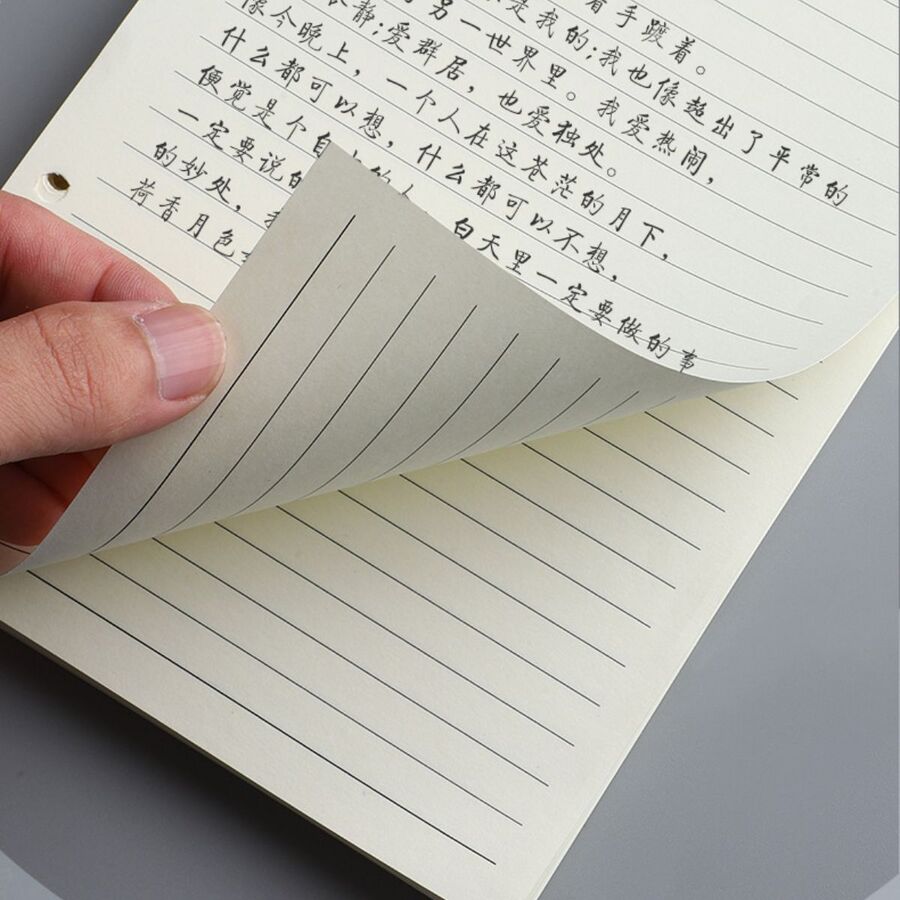 着手踱着。
是我的;我也像超出了平常的
另一世界里。我爱热闹，
静;爱群居，也爱独处。
像今晚上，一个人在这苍茫的月下，
什么都可以想，什么都可以不想，
便觉是个自 白天里一定要做的事
一定要说的
的妙处，
荷香月色